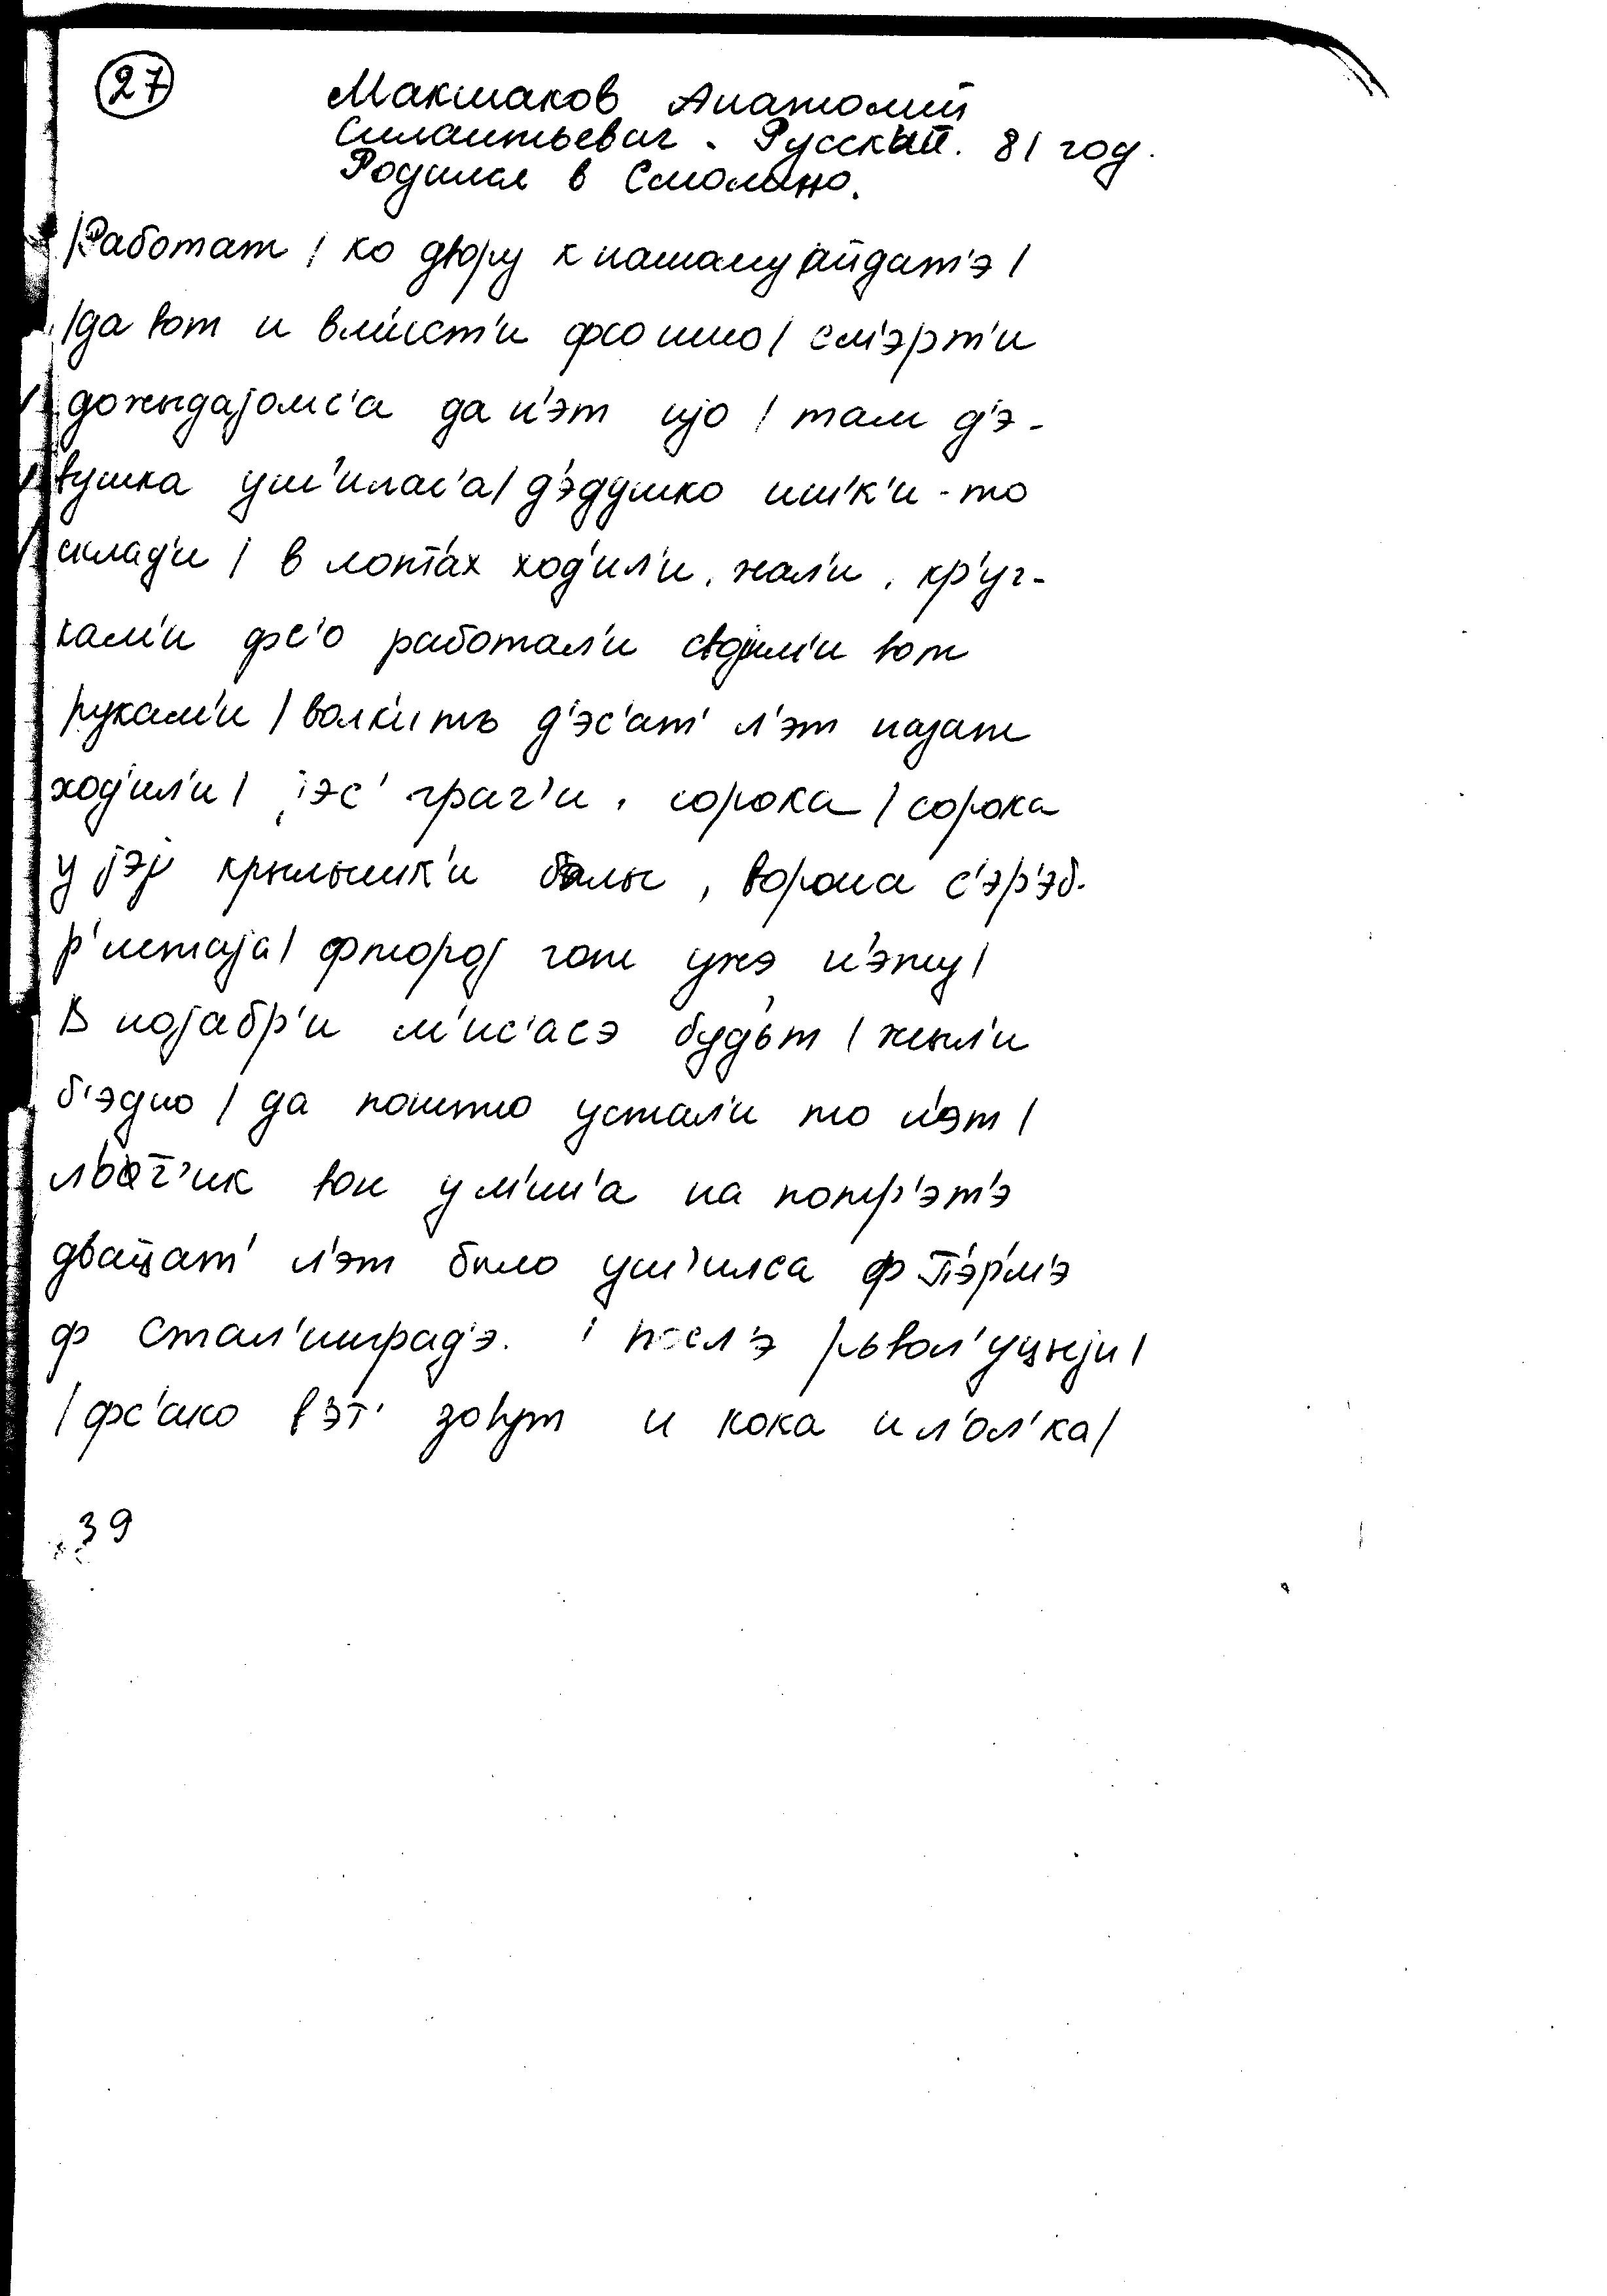 27
Макшаков Анатолий
Силантьевич. Русский. 81 год.
Родился в Смолино.
/Работат / ко двору к нашаму айдат'э /
/да вот и вм'ист'и фс'о ишо / см'эрт'и
дожыдајомс'а да н'эт јијо / там д'э-
вушка уш'илас'а / д'эдушко иш'к'и-то
склад'и / в лопт'ах ход'ил'и, жал'и, кр'уг-
кам'и фс'о работал'и својим'и вот
рукам'и / волк'итъ д'эс'ат' л'эт назат
ход'ил'и / јэс'грач'и, сорока / сорока
у јэј крылышк'и б'элы, ворона с'эр'эб-
р'истаја / фторој гот ужэ н'эту /
В нојабр'и м'ис'асэ буд'ьт / жыл'и
б'эдно / да пошто устал'и то н'эт /
л'отч'ик вон у м'ин'а на потр'эт'э
двацат' л'эт было уш'илса ф П'эрм'э
ф Стал'инград'э. / посл'э р'ьвол'уцыји /
/ фс'ако вэт' зовут и кока и л'ол'ка /
39